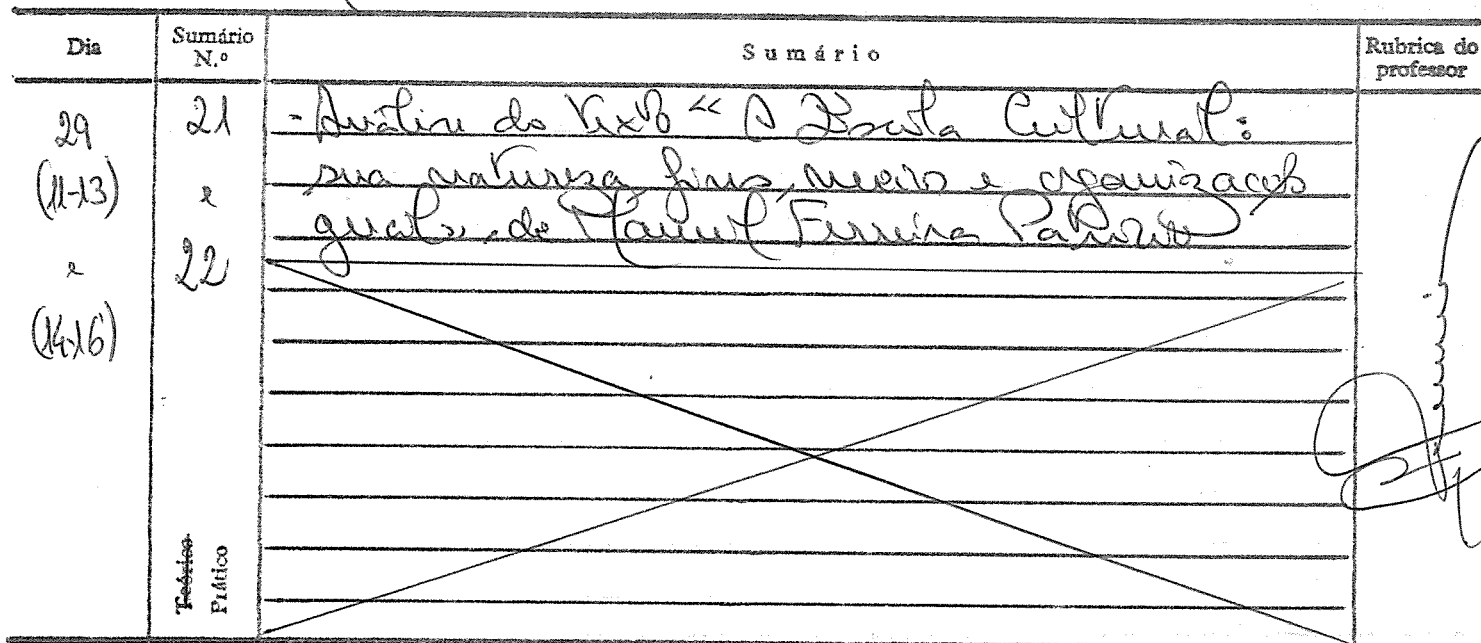 Dia
Sumário N.º
Sumário
Rubrica do professor
29
(11-13)
e
(14-16)
21
e
22
- Análise do texto « A Escola Cultural:
sua natureza fins, meios e organização
geral», de Manuel Ferreira Patrício
Teórico
Prático